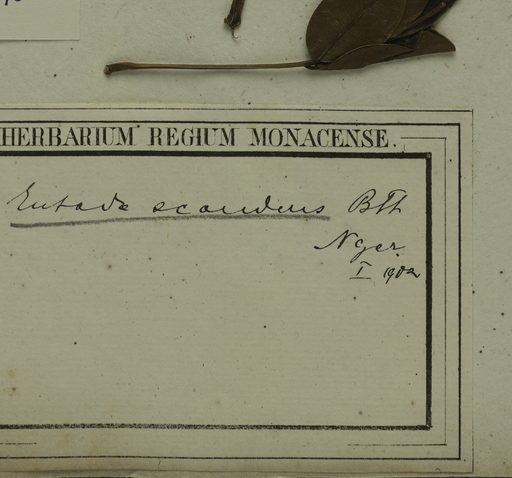 HERBARIUM REGIUM MONACENSE.
Entada scandens Bth
Nger.
I 1902